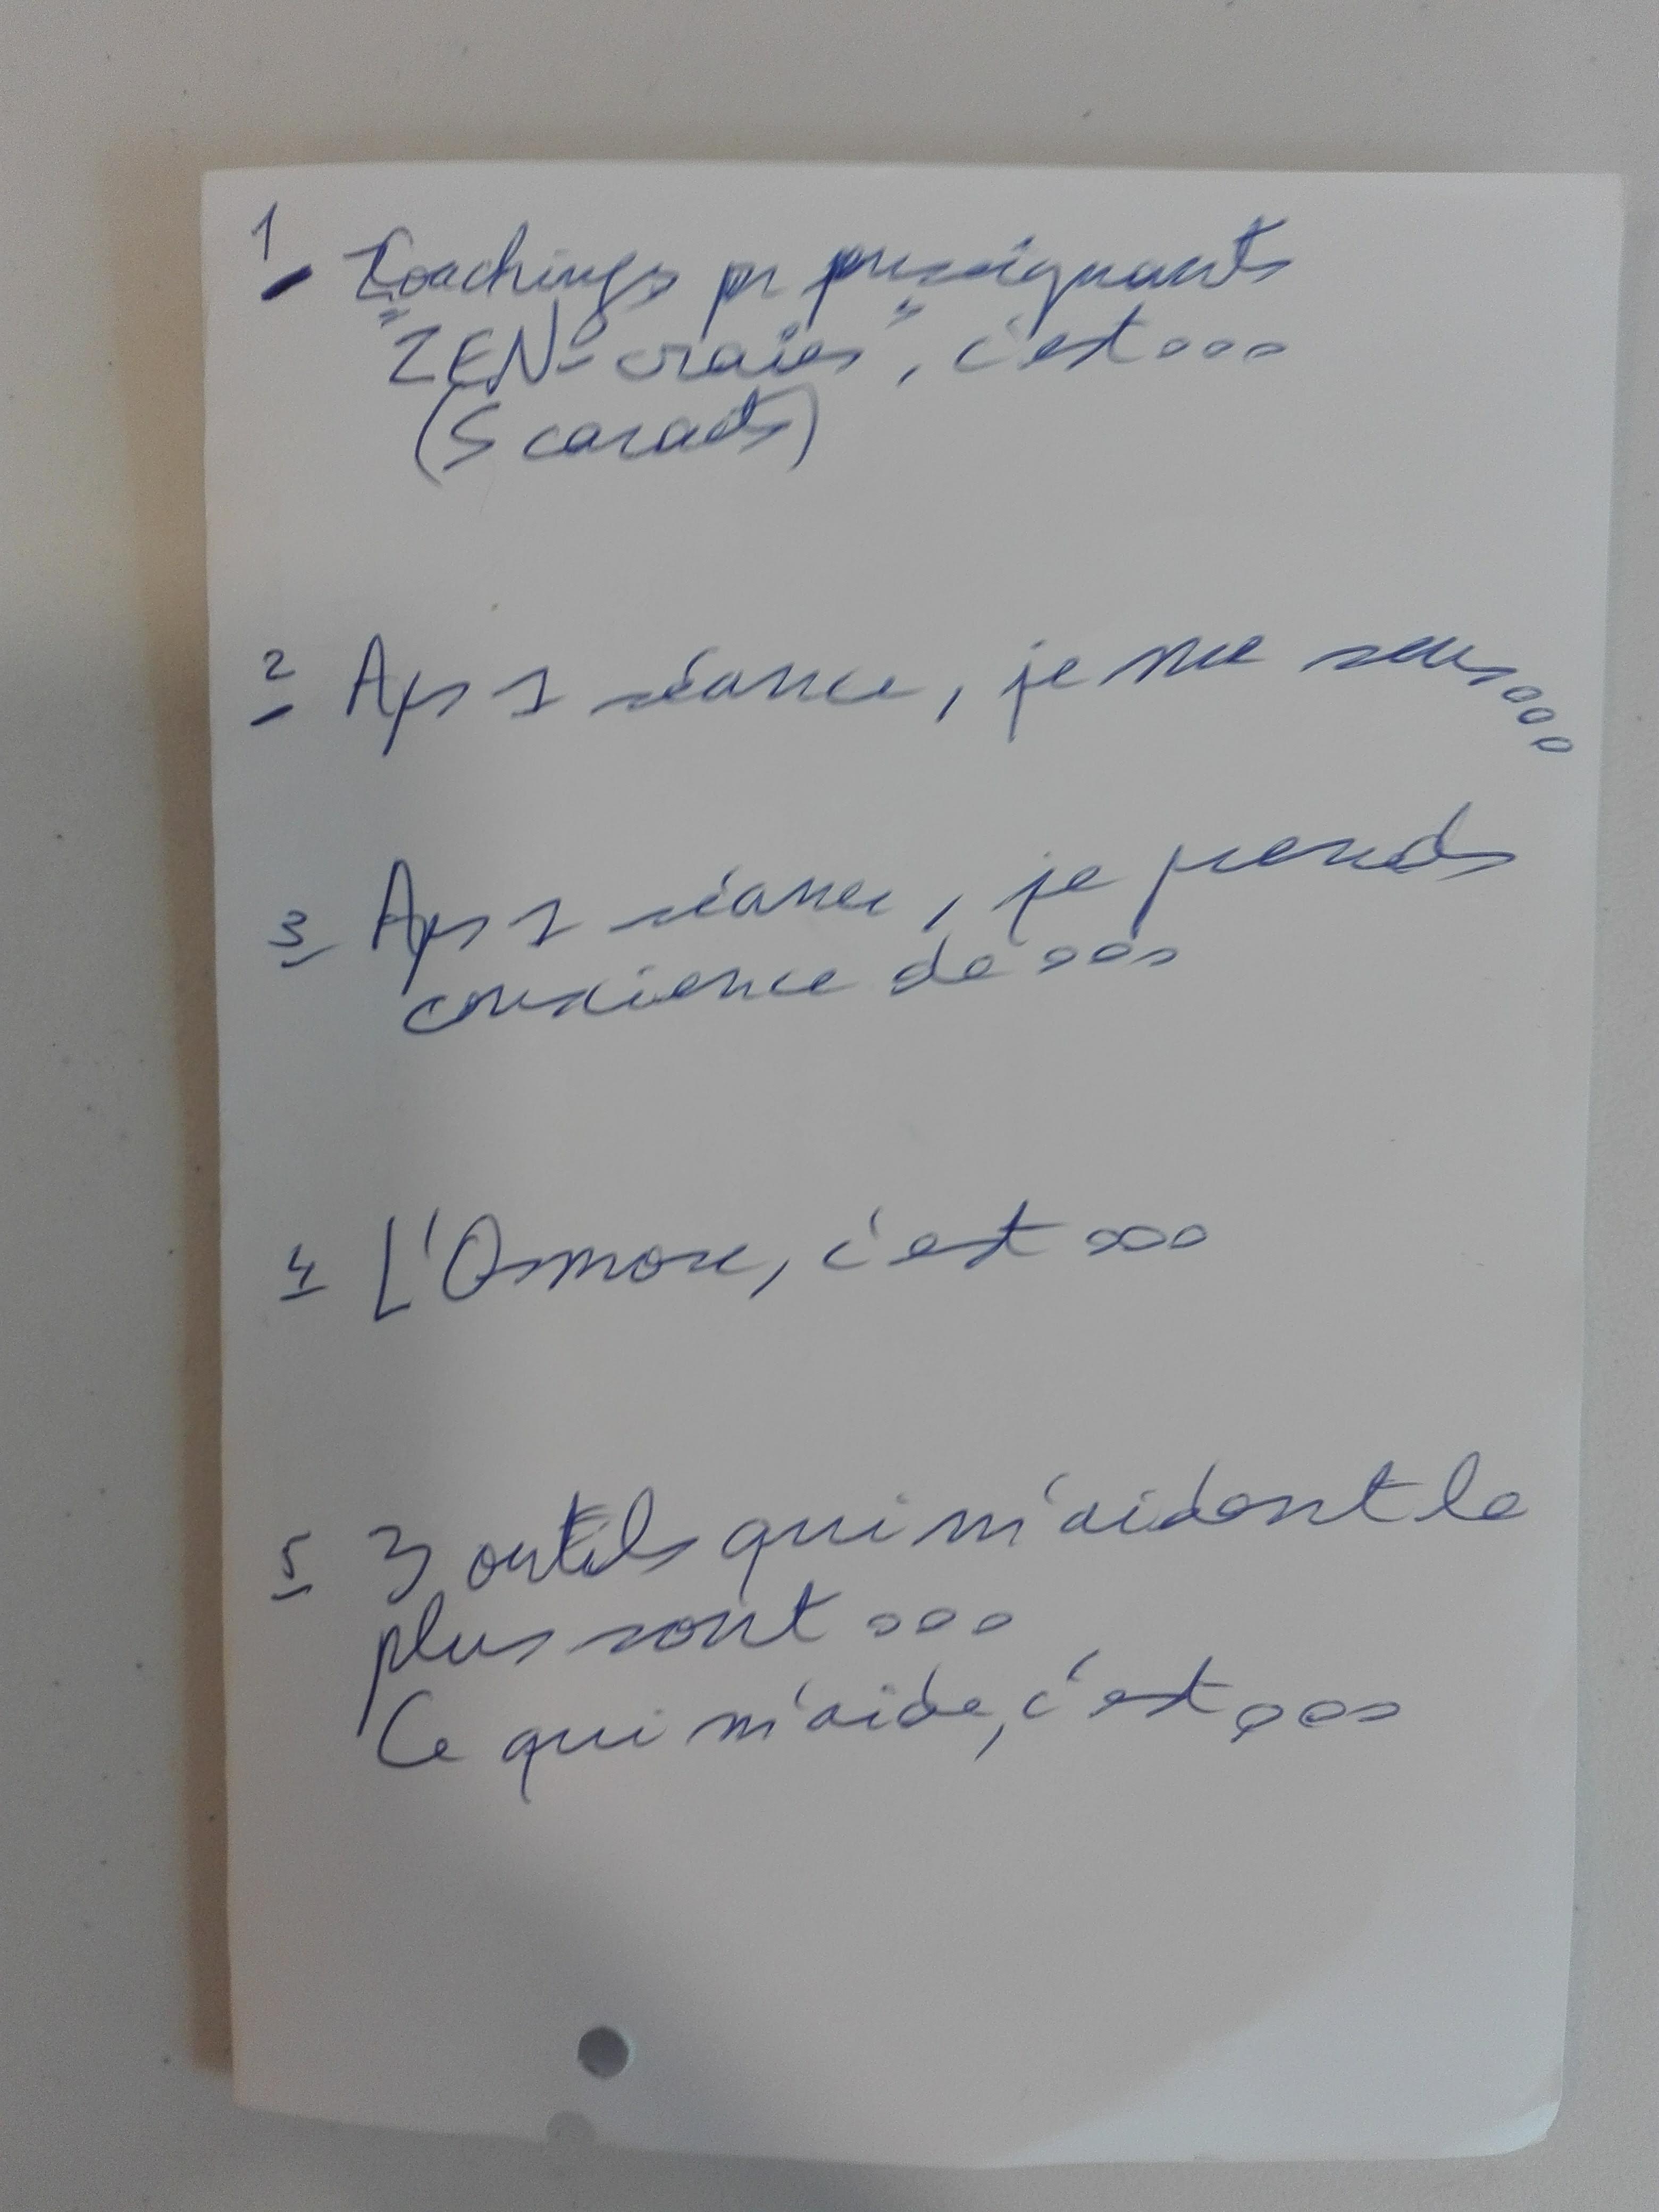 1 - Coachings pr
"ZEN-vraies", c'est...
(5 carats)
2 - Aps 1 séance, je me sens...
3 - Aps 1 séance, je prends
conscience de...
4 - L'Osmose, c'est...
5 - 3 outils qui m'aident le
plus sont...
Ce qui m'aide, c'est...